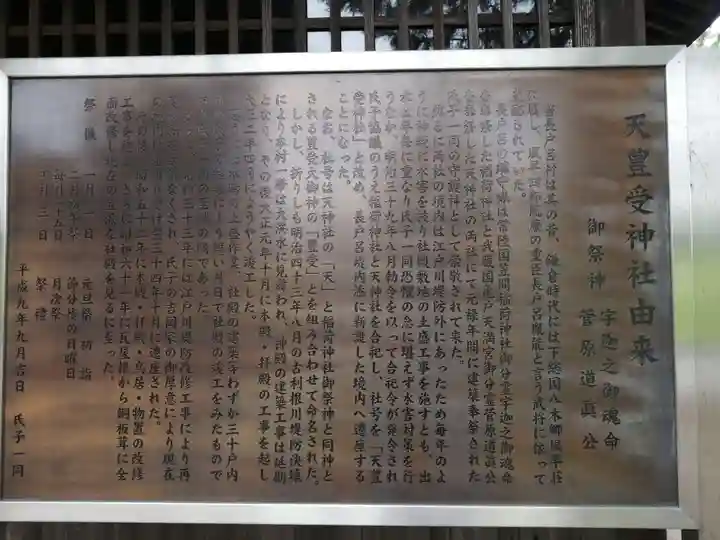 天豊受神社由来
御祭神 宇迦之御魂命
菅原道真公
当長戸呂村は其の昔、鎌倉時代には下総国八木郷風早荘
に属し、
の重臣長戸呂胤能と言う武将に依って
支配されていた。
長戸呂の
は常陸国笠間稲荷神社御分霊宇迦之御魂命
を
稲荷神社と武蔵国亀戸天満宮御分霊菅原道真公
を
天神社の両社にて元禄年間に建築奉祭された
氏子一同の守護神として崇敬されて来た。
然るに両社の境内は江戸川堤防外にあったため毎年のよ
うに神域に水害を被り社殿敷地の土盛工事を施すとも、出
水は年毎に重なり氏子一同恐懼の念に堪えず水害対策を行
うなか、明治三十九年八月勅令を以って合祀令が発令され
氏子協議のうえ稲荷神社と天神社を合祀し、社号を「天豊
受神社」と改め、長戸呂
に新設した境内へ遷座する
ことになった。
なお、社号は天神社の「天」と稲荷神社御祭神と同神と
される豊受大御神の「豊受」とを組み合わせて命名された。
しかし、折りしも明治四十三年八月の古利根川堤防決壊
により本村一帯は大洪水に見舞われ、神殿の建築工事は延期
となり、その後大正元年十月に本殿・拝殿の工事を起し
大正二年四月にようやく竣工した。
土盛作業、社殿の建築等わずか三十戸内
により思い月日で社殿の竣工をみたもので
であった。
三十三年には江戸川堤防改修工事により再
なくされ、氏子の吉岡家の御厚意により現在
三十四年十月に遷座された。
その後、昭和五十二年に本殿・拝殿・鳥居・物置の改修
工事を施し、さらに昭和六十一年に瓦屋根から銅板葺に全
面改修し現在の立派な社殿を見るに至った。
祭儀 一月一日 元旦祭 初詣
二月
節分後の日曜日
毎月二十五日 月次祭
十月十三日 祭禮
平成九年九月吉日 氏子一同